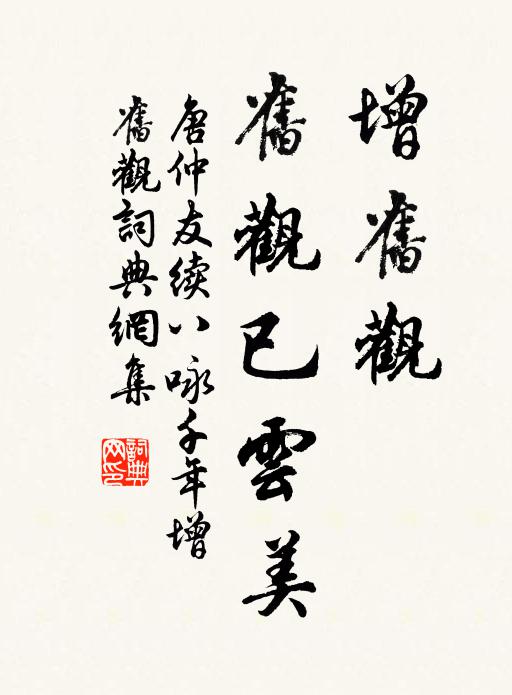 增舊觀
舊觀已雲美
唐仲友續八咏千年增
舊觀詞典網集
詞典
网印